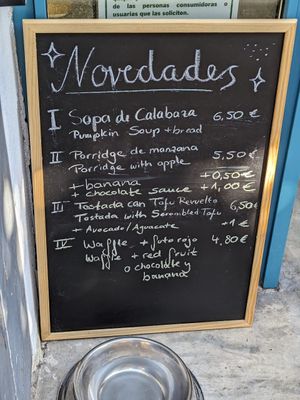 de las personas consumidoras o
usuarias que las soliciten.
Novedades
I Sopa de Calabaza 6,50 €
Pumpkin Soup + bread
II Porridge de manzana 5,50 €
Porridge with apple
+ banana +0,50 €
+ chocolate sauce +1,00 €
III Tostada con Tofu Revuelto 6,50 €
Tostada with Scrembled Tofu
+ Avocado/Aguacate +1 €
IV Waffle + futo rojo 4,80 €
Waffle + red fruit
o chocolate y
banana